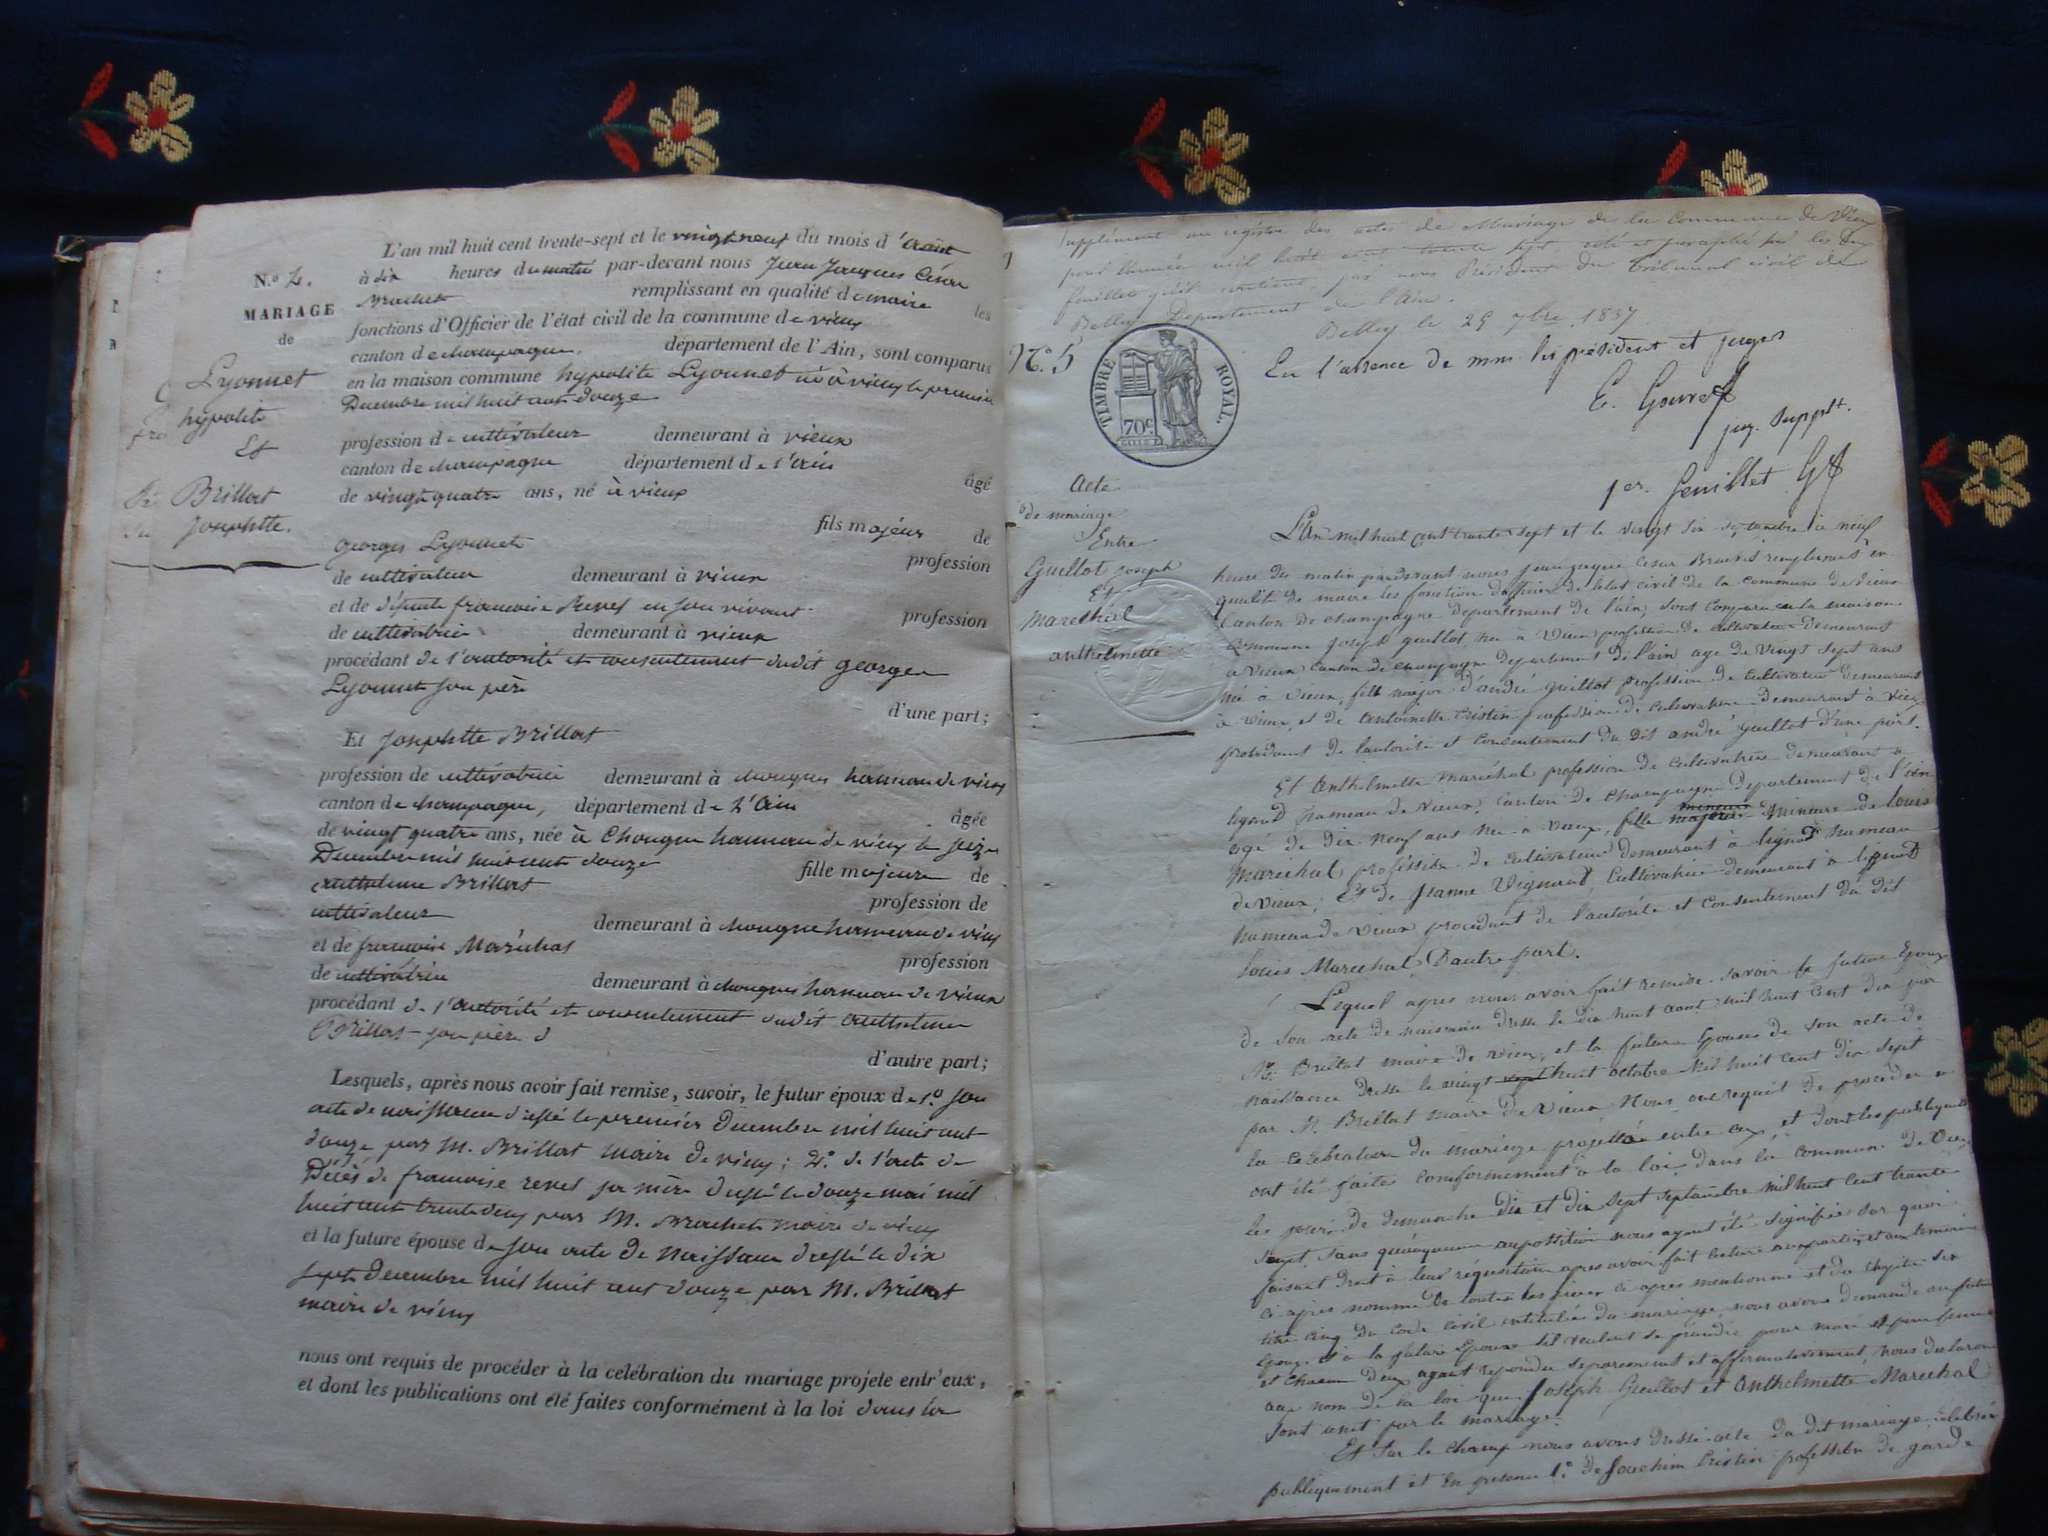 N.º 4.
MARIAGE
de
Lyonnet
hypolite
Et
Brillat
Josephtte.
L'an mil huit cent trente-sept et le vingt neuf du mois d'Août
à dix heures du matin par-devant nous Jean Jacques César
Brachet remplissant en qualité de maire les
fonctions d'Officier de l'état civil de la commune de vieux
canton de champagne, département de l'Ain, sont comparus
en la maison commune hypolite Lyonnet né à vieux le premier
Decembre mil huit cent douze
profession de cultivateur demeurant à vieux
canton de champagne département de l'ain
de vingt quatre ans, né à vieux âgé
fils majeur de
georges Lyonnet profession
de cultivateur demeurant à vieux
et de défunte francoise Revel en son vivant profession
de cultivatrice demeurant à vieux
procédant de l'autorité et consentement dudit george
Lyonnet son père
d'une part;
Et Josephtte Brillat
profession de cultivatrice demeurant à chongnes hameau de vieux
canton de champagne, département de L'ain
âgée
de vingt quatre ans, née à Chongne hameau de vieux le seize
Decembre mil huit cent douze
fille majeure de
anthelme Brillat profession de
cultivateur demeurant à chongne hameau de vieux
et de francoise Maréchal profession
de cultivatrice demeurant à chongnes hameau de vieux
procédant de l'autorité et consentement dudit anthelme
Brillat son père
d'autre part;
Lesquels, après nous avoir fait remise, savoir, le futur époux de 1.º son
acte de naissance dressé le premier Decembre mil huit cent
douze par M. Brillat maire de vieux; 2.º de l'acte de
Décès de francoise revel sa mère dressé le douze mai mil
huit cent trente deux par M. Brachet maire de vieux
et la future épouse de son acte de Naissance dressé le dix
sept Decembre mil huit cent douze par M. Brillat
maire de vieux
nous ont requis de procéder à la celébration du mariage projeté entr'eux,
et dont les publications ont été faites conformément à la loi dans la
Supplément au registre des actes de Mariage de la Commune de Vieu
pour l'année mil huit cent trente sept coté et paraphé par les deux
feuillets qu'il contient, par nous Président du tribunal civil de
Belley Département de l'Ain.
Belley le 25 7bre 1837
N.º 5
TIMBRE ROYAL
70c
En l'absence de mm les président et juges
E. Gouvet
jug. Supplt.
1er. feuillet G
Acte
de mariage
Entre
Guillot joseph
Et
Maréchal
anthelmette
L'an mil huit cent trente sept et le vingt six septembre à neuf
heure du matin pardevant nous jean jaque Cesar Brachet remplissant en
qualité de maire les fonction d'officier de l'etat civil de la commune de Vieux
Canton de champagne departement de l'ain, sont Comparu en la maison
Commune joseph guillot né à Vieux profession de cultivateur demeurant
à vieux canton de champagne departement de l'ain age de vingt sept ans
né à vieux, fils major d'andré guillot profession de Cultivateur demeurant
à vieux, et de Antoinette Cristin profession de cultivatrice demeurant à vieux
procedant de l'autorité et Consentement du dit andré guillot d'une part.
Et Anthelmette maréchal profession de cultivatrice demeurant à
lignod hameau de vieux, Canton de champagne departement de l'ain
agé de dix neuf ans née à vieux, fille majeure mineure mineure de louis
Maréchal profession de cultivateur demeurant à lignod hameau
de vieux, Et de Jeanne Vignand, Cultivatrice demeurant à lignod
hameau de vieux procedant de l'autorité et consentement du dit
Louis Marechal D'autre part.
Lequel apres nous avoir fait remise savoir le future Epoux
de son acte de naissance dressé le dix huit aout mil huit cent dix par
Mr. Brillat maire de vieux, et la future Epouse de son acte de
naissance dressé le vingt sept huit octobre mil huit cent dix sept
par Mr. Brillat maire de vieux Nous ont requit de proceder à
la celebration du mariage projetté entre eux, et dont les publiquations
ont été faites conformement à la loi dans la commun de vieux
les jours de dimanche dix et dix sept septembre mil huit cent trante
sept, sans qu'aucune oppostition nous ayant été signifié sur quoi
faisant droit à leur requisition apres avoir fait lecture aux parties et aux temoins
ci apres nommé de toutes les pieces ci apres mentionné et du chapitre six
titre cinq du code civil intitulé du mariage, nous avons demandé au futur
Epoux et à la future Epouse s'il veulent se prendre pour mari et pour femme
et chacun deux ayant repondu separement et affirmativement, nous declarons
au nom de la loi que Joseph Guillot et Anthelmette Marechal
sont unit par le mariage.
Et sur le champ nous avons dressé acte du dit mariage célébré
publiquement et en presence 1.º de Joachim Cristin profession de garde